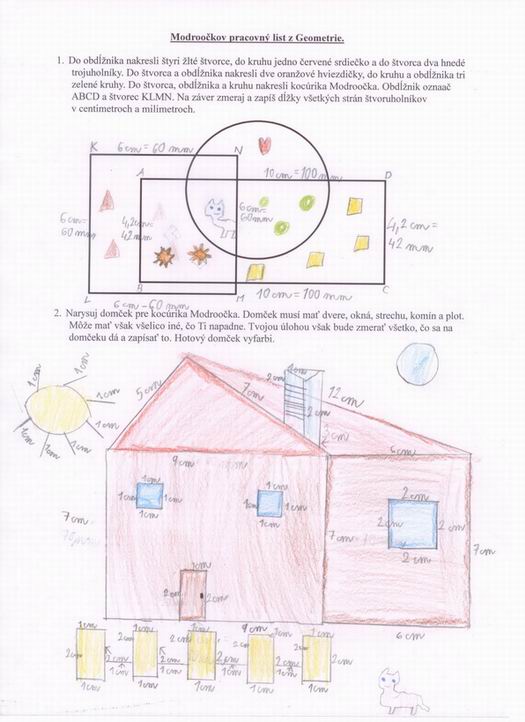 Modroočkov pracovný list z Geometrie.
1. Do obdĺžnika nakresli štyri žlté štvorce, do kruhu jedno červené srdiečko a do štvorca dva hnedé
trojuholníky. Do štvorca a obdĺžnika nakresli dve oranžové hviezdičky, do kruhu a obdĺžnika tri
zelené kruhy. Do štvorca, obdĺžnika a kruhu nakresli kocúrika Modroočka. Obdĺžnik oznaač
ABCD a štvorec KLMN. Na záver zmeraj a zapíš dĺžky všetkých strán štvoruholníkov
v centimetroch a milimetroch.
K 6 cm = 60 mm N
A 10 cm = 100 mm D
6 cm = 60 mm
4,2 cm = 42 mm
6 cm = 60 mm
4,2 cm = 42 mm
B C
L 6 cm - 60 mm M 10 cm = 100 mm
2. Narysuj domček pre kocúrika Modroočka. Domček musí mať dvere, okná, strechu, komín a plot.
Môže mať však všelico iné, čo Ti napadne. Tvojou úlohou však bude zmerať všetko, čo sa na
domčeku dá a zapísať to. Hotový domček vyfarbi.
1cm 1cm
1cm
1cm
1cm 1cm
5cm 7cm 2cm 2cm 12 cm
9cm 6cm
1cm 1cm 2 cm
1cm 1cm 1cm 2cm 2cm
1cm 1cm 2 cm
7cm 7cm 7cm
1cm
2cm 2cm
9cm 6 cm
1cm 1cm 1cm 1cm
2cm 2cm 2cm 2cm 2cm 2cm
1cm 1cm 1cm 1cm 1cm